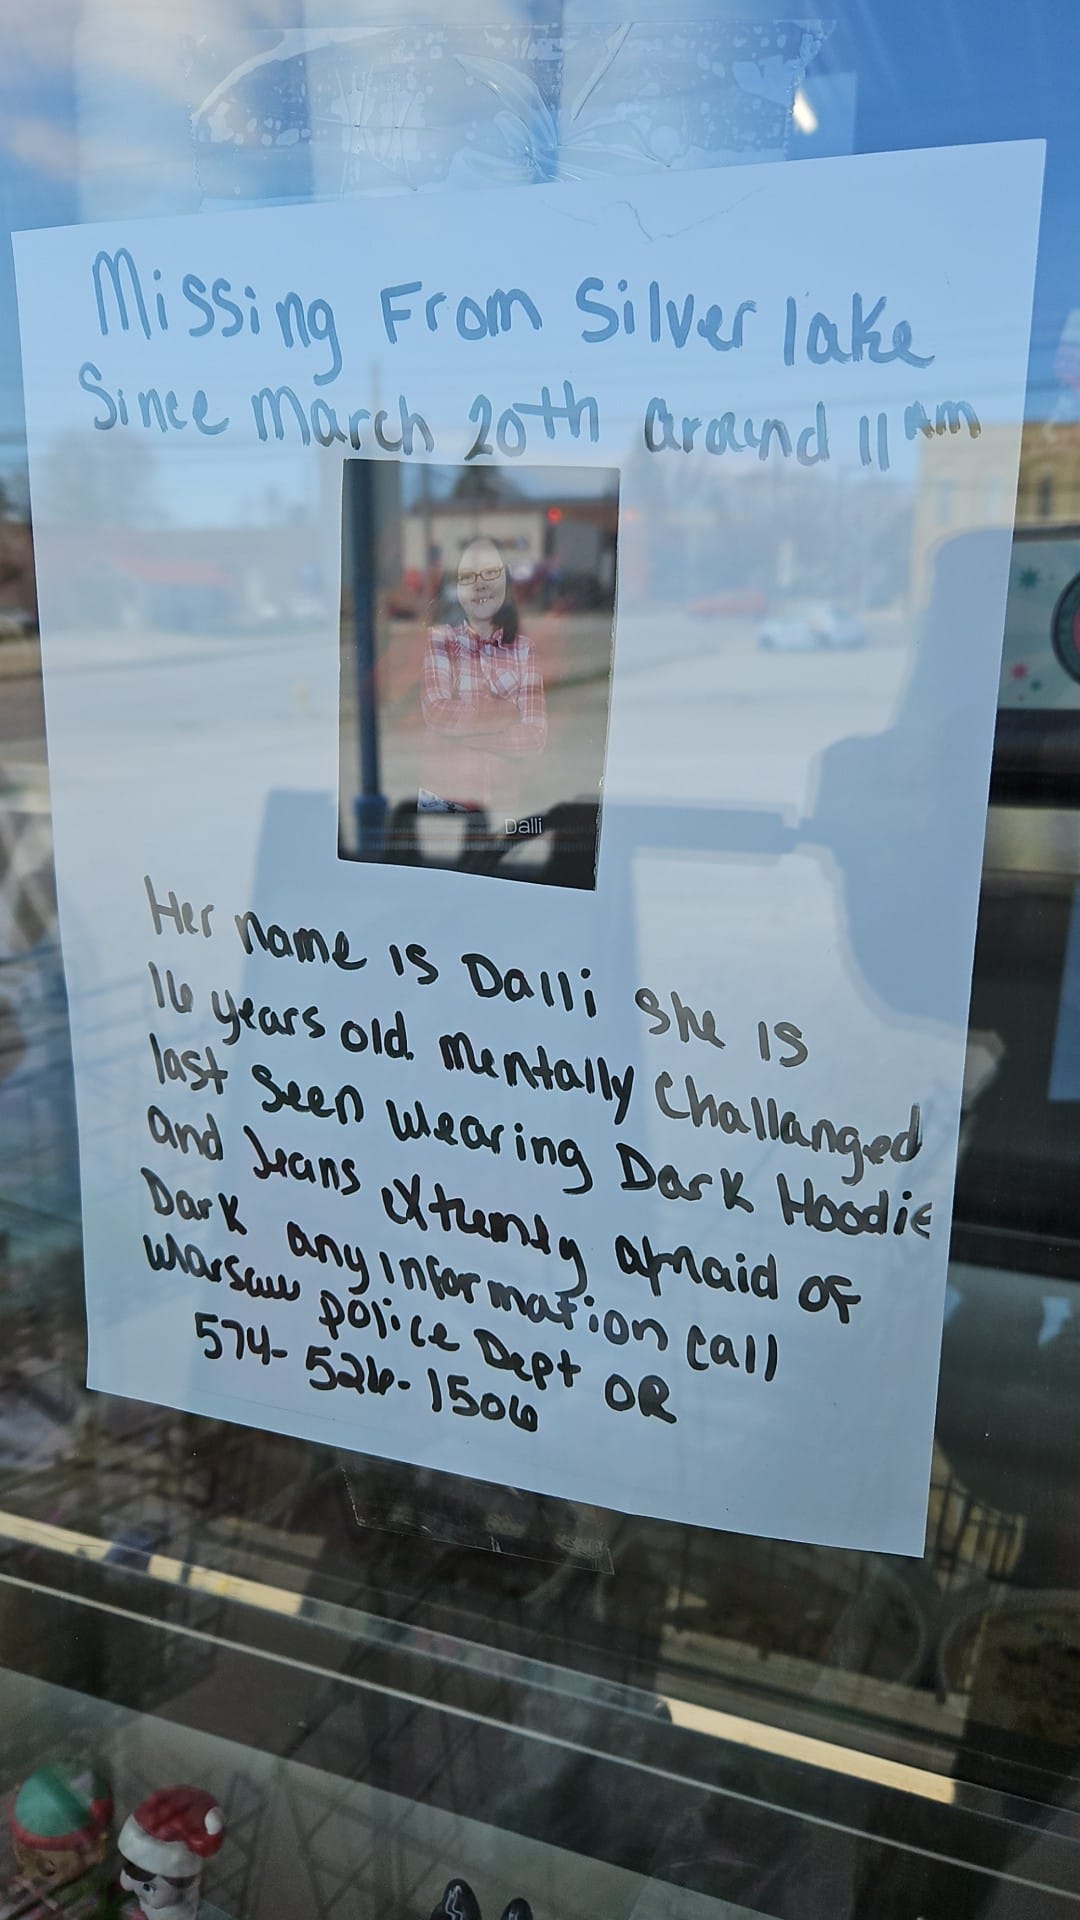 Missing From Silver lake
Since March 20th around 11 AM
Dalli
Her name is Dalli she is
16 years old. mentally Challanged
last seen wearing Dark Hoodie
and Jeans extremly afraid of
Dark any information call
Warsaw police Dept OR
574-526-1506